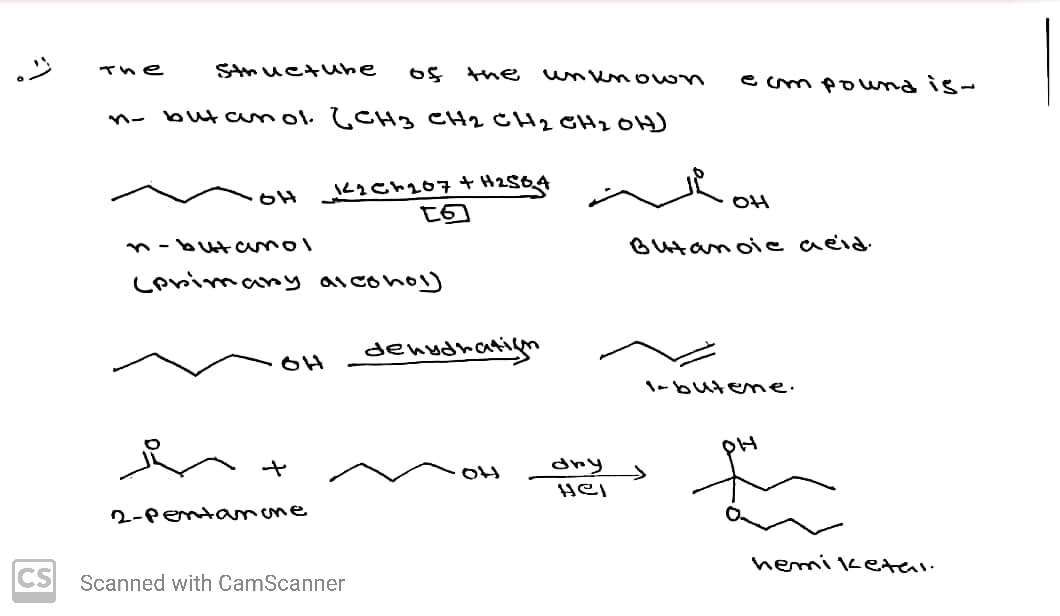 The structure of the unknown compound is-
n- butanol. (CH3 CH2 CH2 CH2 OH)
OH K2Cr2O7 + H2SO4 O
[O] OH
n-butanol Butanoic acid.
(primary alcohol)
OH dehydration
1-butene.
O + OH dry OH
HCl
2-pentanone O
hemiketal.
CS Scanned with CamScanner